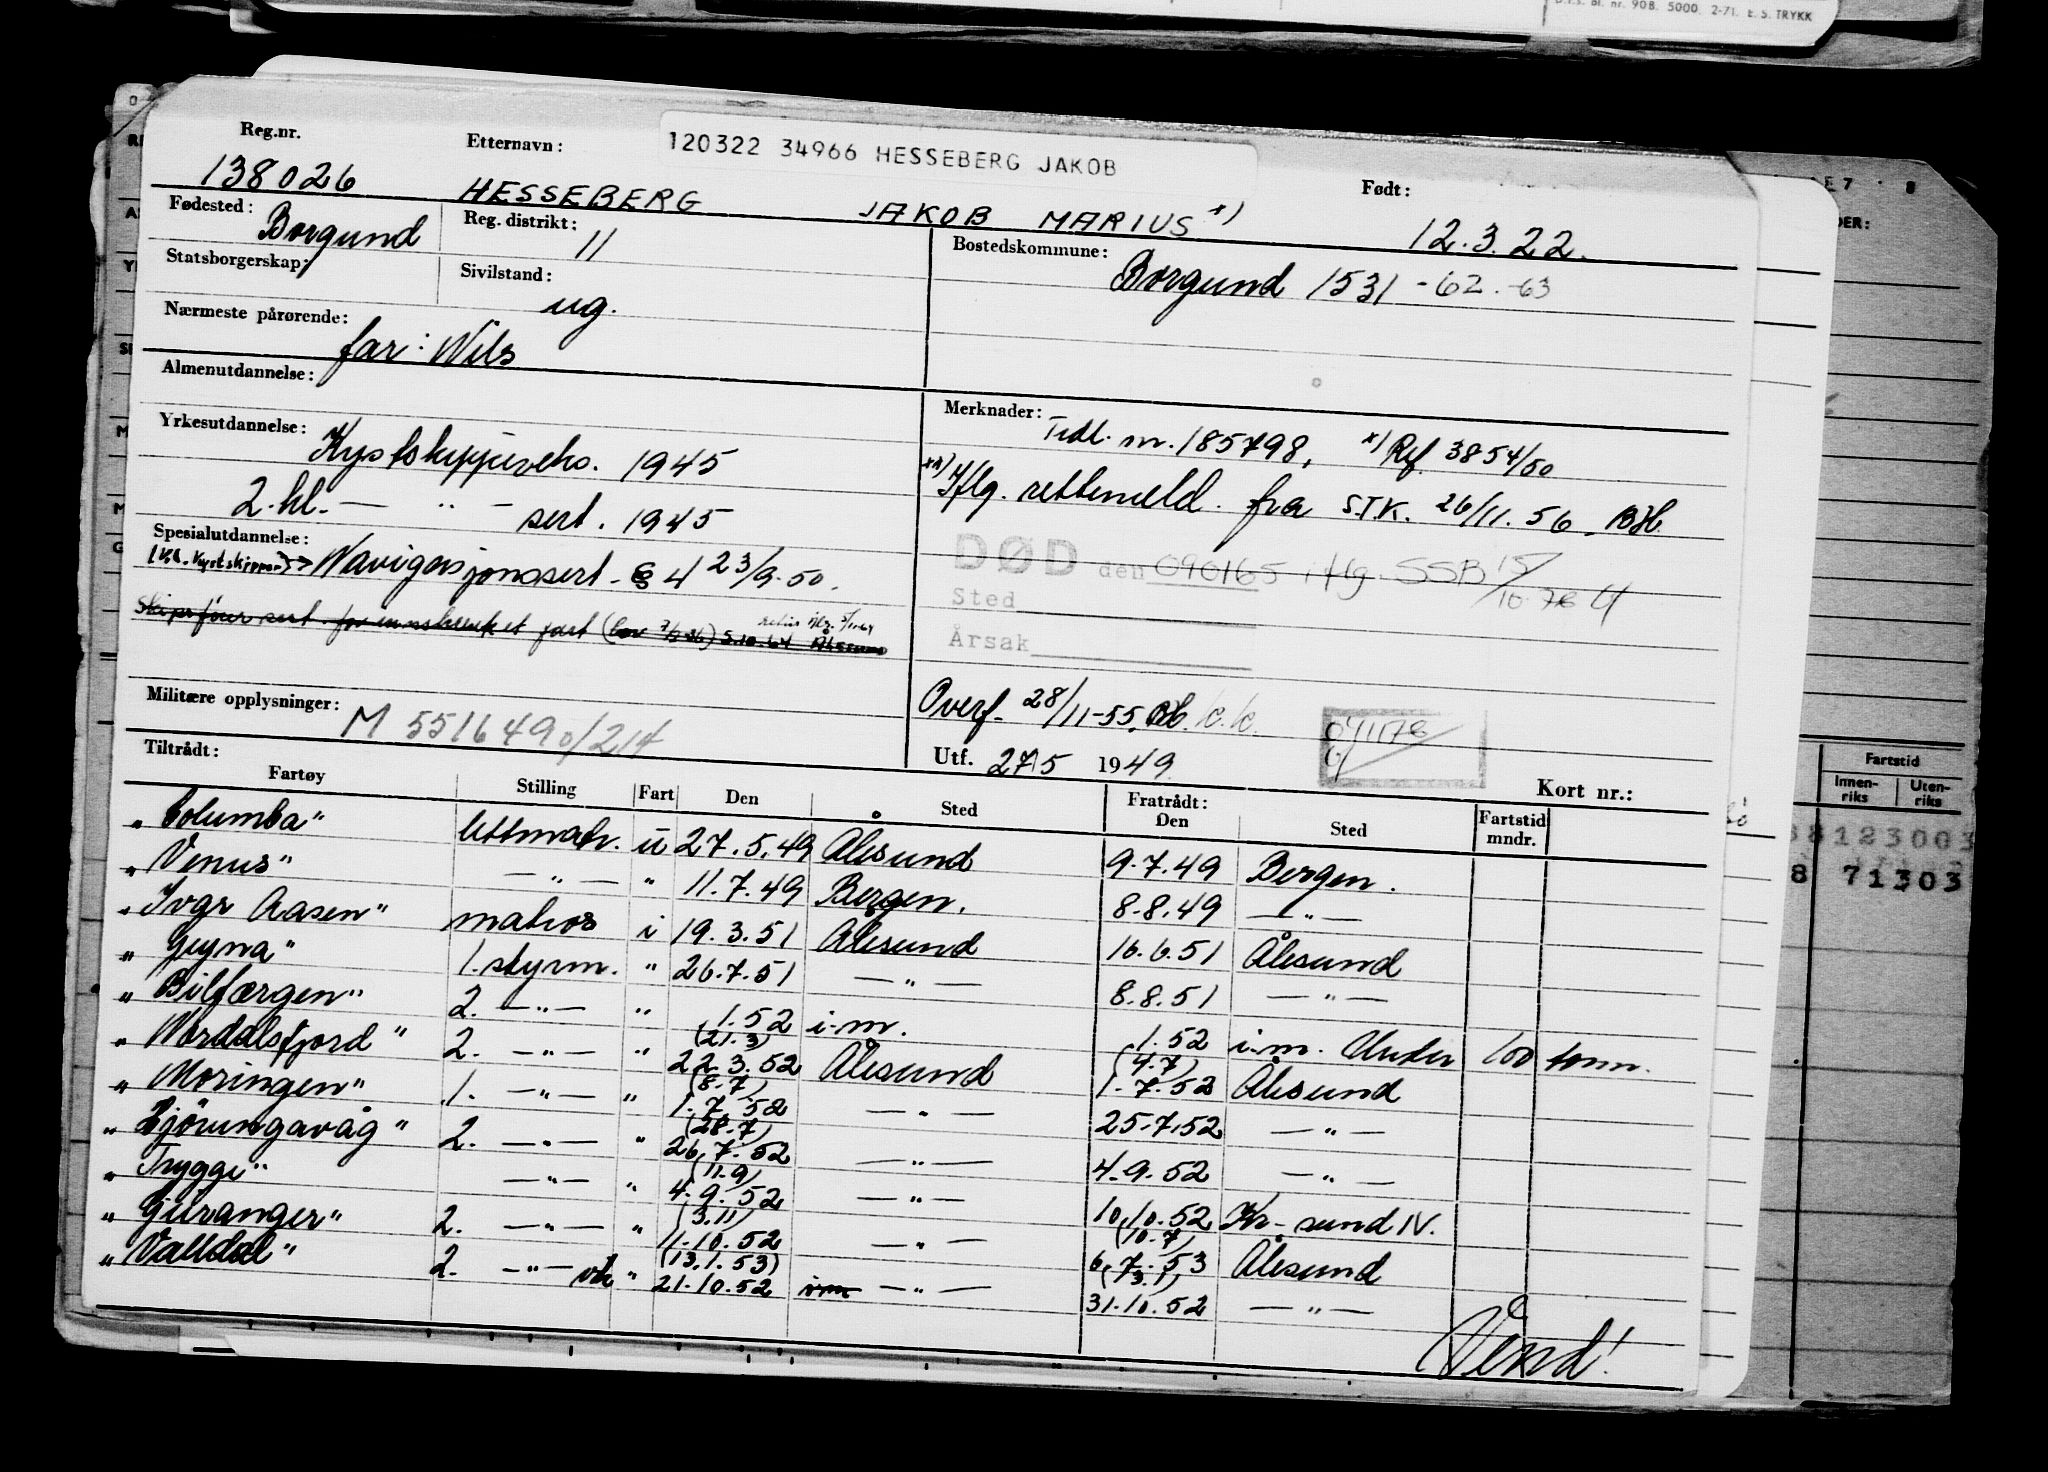 D.T.S. Bl. nr. 908. 5000. 2-71. E. S. TRYKK
Reg.nr. Etternavn: 120322 34966 HESSEBERG JAKOB Født:
138026 HESSEBERG JAKOB MARIUS *) 12.3.22.
Fødested: Borgund Reg. distrikt: 11
Bostedskommune: Borgund 1531 -62.-63
Statsborgerskap: Sivilstand: ug.
Nærmeste pårørende: far: Nils
Almenutdannelse:
Yrkesutdannelse: Kystskippereks. 1945
2. kl. — " — sert. 1945
Spesialutdannelse:
(Kl. Kystskipper) → Navigasjonssert. § 4 23/9.50.
5.10.64
Merknader: Tidl. nr. 185798, *) Ref. 3854/50
**) Iflg. rettemeld. fra S.T.K. 26/11.56.
DØD den 090165 iflg. SSB 15/10.76
Sted
Årsak
Overf. 28/11-55.
Militære opplysninger: M 5516490/214
Utf. 27/5 1949 071178 Kort nr.:
Tiltrådt: Fratrådt:
Fartøy Stilling Fart Den Sted Den Sted Fartstid mndr.
"Columba" lettmatr. u 27.5.49 Ålesund 9.7.49 Bergen.
"Venus" — " — " 11.7.49 Bergen. 8.8.49 — " —
"Ivar Aasen" matros i 19.3.51 Ålesund 16.6.51 Ålesund
1. styrm. " 26.7.51 — " — 8.8.51 — " —
"Bilfærgen" 2. — " — " 1.52 i.m. 1.52 i.m. Under 100 tonn.
"Nordalsfjord" 2. — " — " (21.3) 22.3.52 Ålesund (4.7) 1.7.52 Ålesund
"Moringen" 1. — " — " (8.7) 1.7.52 — " — 25.7.52 — " —
"Hjørungavåg" 2. — " — " (28.7) 26.7.52 — " — 4.9.52 — " —
"Trygge" — " — " (11.9) 4.9.52 — " — 10.10.52 Kr.sund N.
"Geiranger" 2. — " — " (3.11) 11.10.52 — " — (10.7) 6.7.53 Ålesund
"Valldal" 2. — " — vik " (13.1.53) 21.10.52 — " — (3.1) 31.10.52 — " —
Vend!
Fartstid
Innenriks Utenriks
8 71303